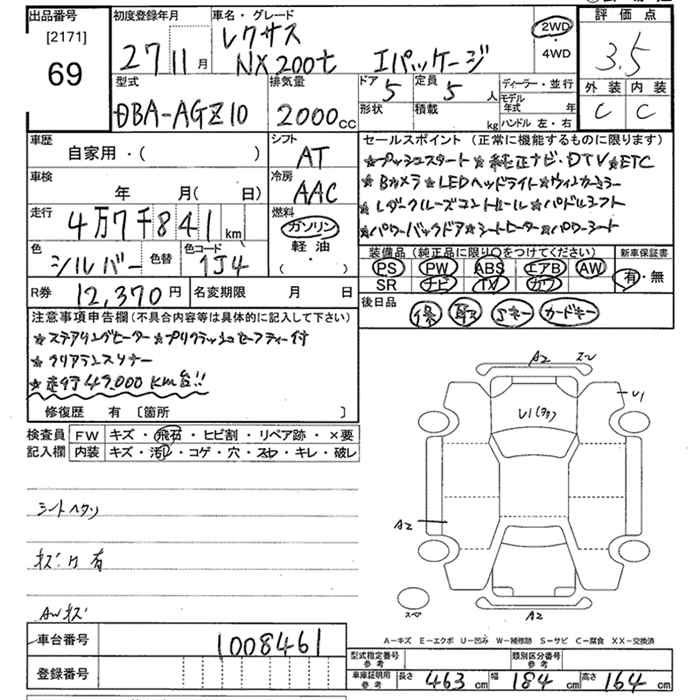 出品番号
[2171]
69
初度登録年月
27 11月
車名・グレード
レクサス
NX200t Iパッケージ
2WD
・
4WD
評価点
3.5
外装 内装
C C
型式
DBA-AGZ10
排気量
2000cc
ドア 5
形状
定員 5 人
積載 kg
ディーラー・並行
モデル年式 年
ハンドル 左・右
車歴
自家用・( )
シフト
AT
車検
年 月( 日)
冷房
AAC
走行
4万7千841km
燃料
ガソリン
軽油
( ・ )
色
シルバー
色替
色コード
1J4
R券 12,370円
名変期限 月 日
セールスポイント (正常に機能するものに限ります)
★プッシュスタート★純正ナビ・DTV★ETC
★Bカメラ★LEDヘッドライト★ウィンカーミラー
★レーダークルーズコントロール★パドルシフト
★パワーバックドア★シートヒーター★パワーシート
装備品 (純正品に限り○をつけてください)
PS PW ABS エアB AW
SR ナビ TV カワ
新車保証書
有・無
後日品
保 取 Sキー カードキー
注意事項申告欄(不具合内容等は具体的に記入して下さい)
★ステアリングヒーター★プリクラッシュセーフティー付
★クリアランスソナー
★走行49,000KM台!!
修復歴 有 [箇所 ]
検査員
記入欄
FW キズ・飛石・ヒビ割・リペア跡・×要
内装 キズ・汚レ・コゲ・穴・スレ・キレ・破レ
シートヘタリ
キズ凹有
AWキズ
A2
U1
A2
A2
スペア
A−キズ E−エクボ U−凹み W−補修跡 S−サビ C−腐食 XX−交換済
車台番号
1008461
登録番号
型式指定番号
参考
類別区分番号
参考
車庫証明用
参考
長さ 463cm 幅 184cm 高さ 164cm